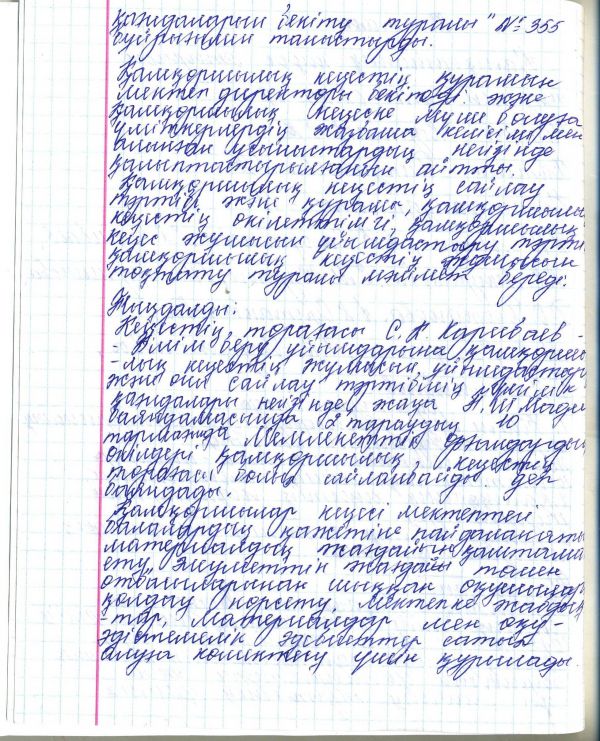 қағидаларын бекіту туралы" №355
бұйрығымен таныстырды.
Қамқоршылық кеңестің құрамын
мектеп директоры бекітеді және
қамқоршылық кеңеске мүше болуға
үміткерлердің жазбаша келісімі мен
алынған ұсыныстардың негізінде
қалыптастырылғанын айтты.
Қамқоршылық кеңестің сайлау
тәртібі және құрамы, қамқоршылық
кеңестің өкілеттілігі, қамқоршылық
кеңес жұмысын ұйымдастыру тәрті
қамқоршылық кеңестің жұмысын
тоқтату туралы мәлімет береді.
Тыңдалды:
Кеңестің төрағасы С.К. Карибаев -
- Білім беру ұйымдарына қамқоршы
-лық кеңестің жұмысын ұйымдастыру
және оны сайлау тәртібінің үлгілік
қағидалары негізінде жаңа
баяндамасында 2 тараудың 10
тармағында Мемлекеттік органдардың
өкілдері қамқоршылық кеңестің
төрағасы болып сайланбайды деп
баяндады.
Қамқоршылар кеңесі мектептегі
балалардың қажетіне пайдаланаты
материалдық жағдайын қамтама
ету, әлеуметтік жағдайы төмен
отбасыларынан шыққан оқушылар
қолдау көрсету, мектепке жабдық
-тар, материалдар мен оқу-
әдістемелік әдебиеттер сатып
алуға көмектесу үшін құрылады.